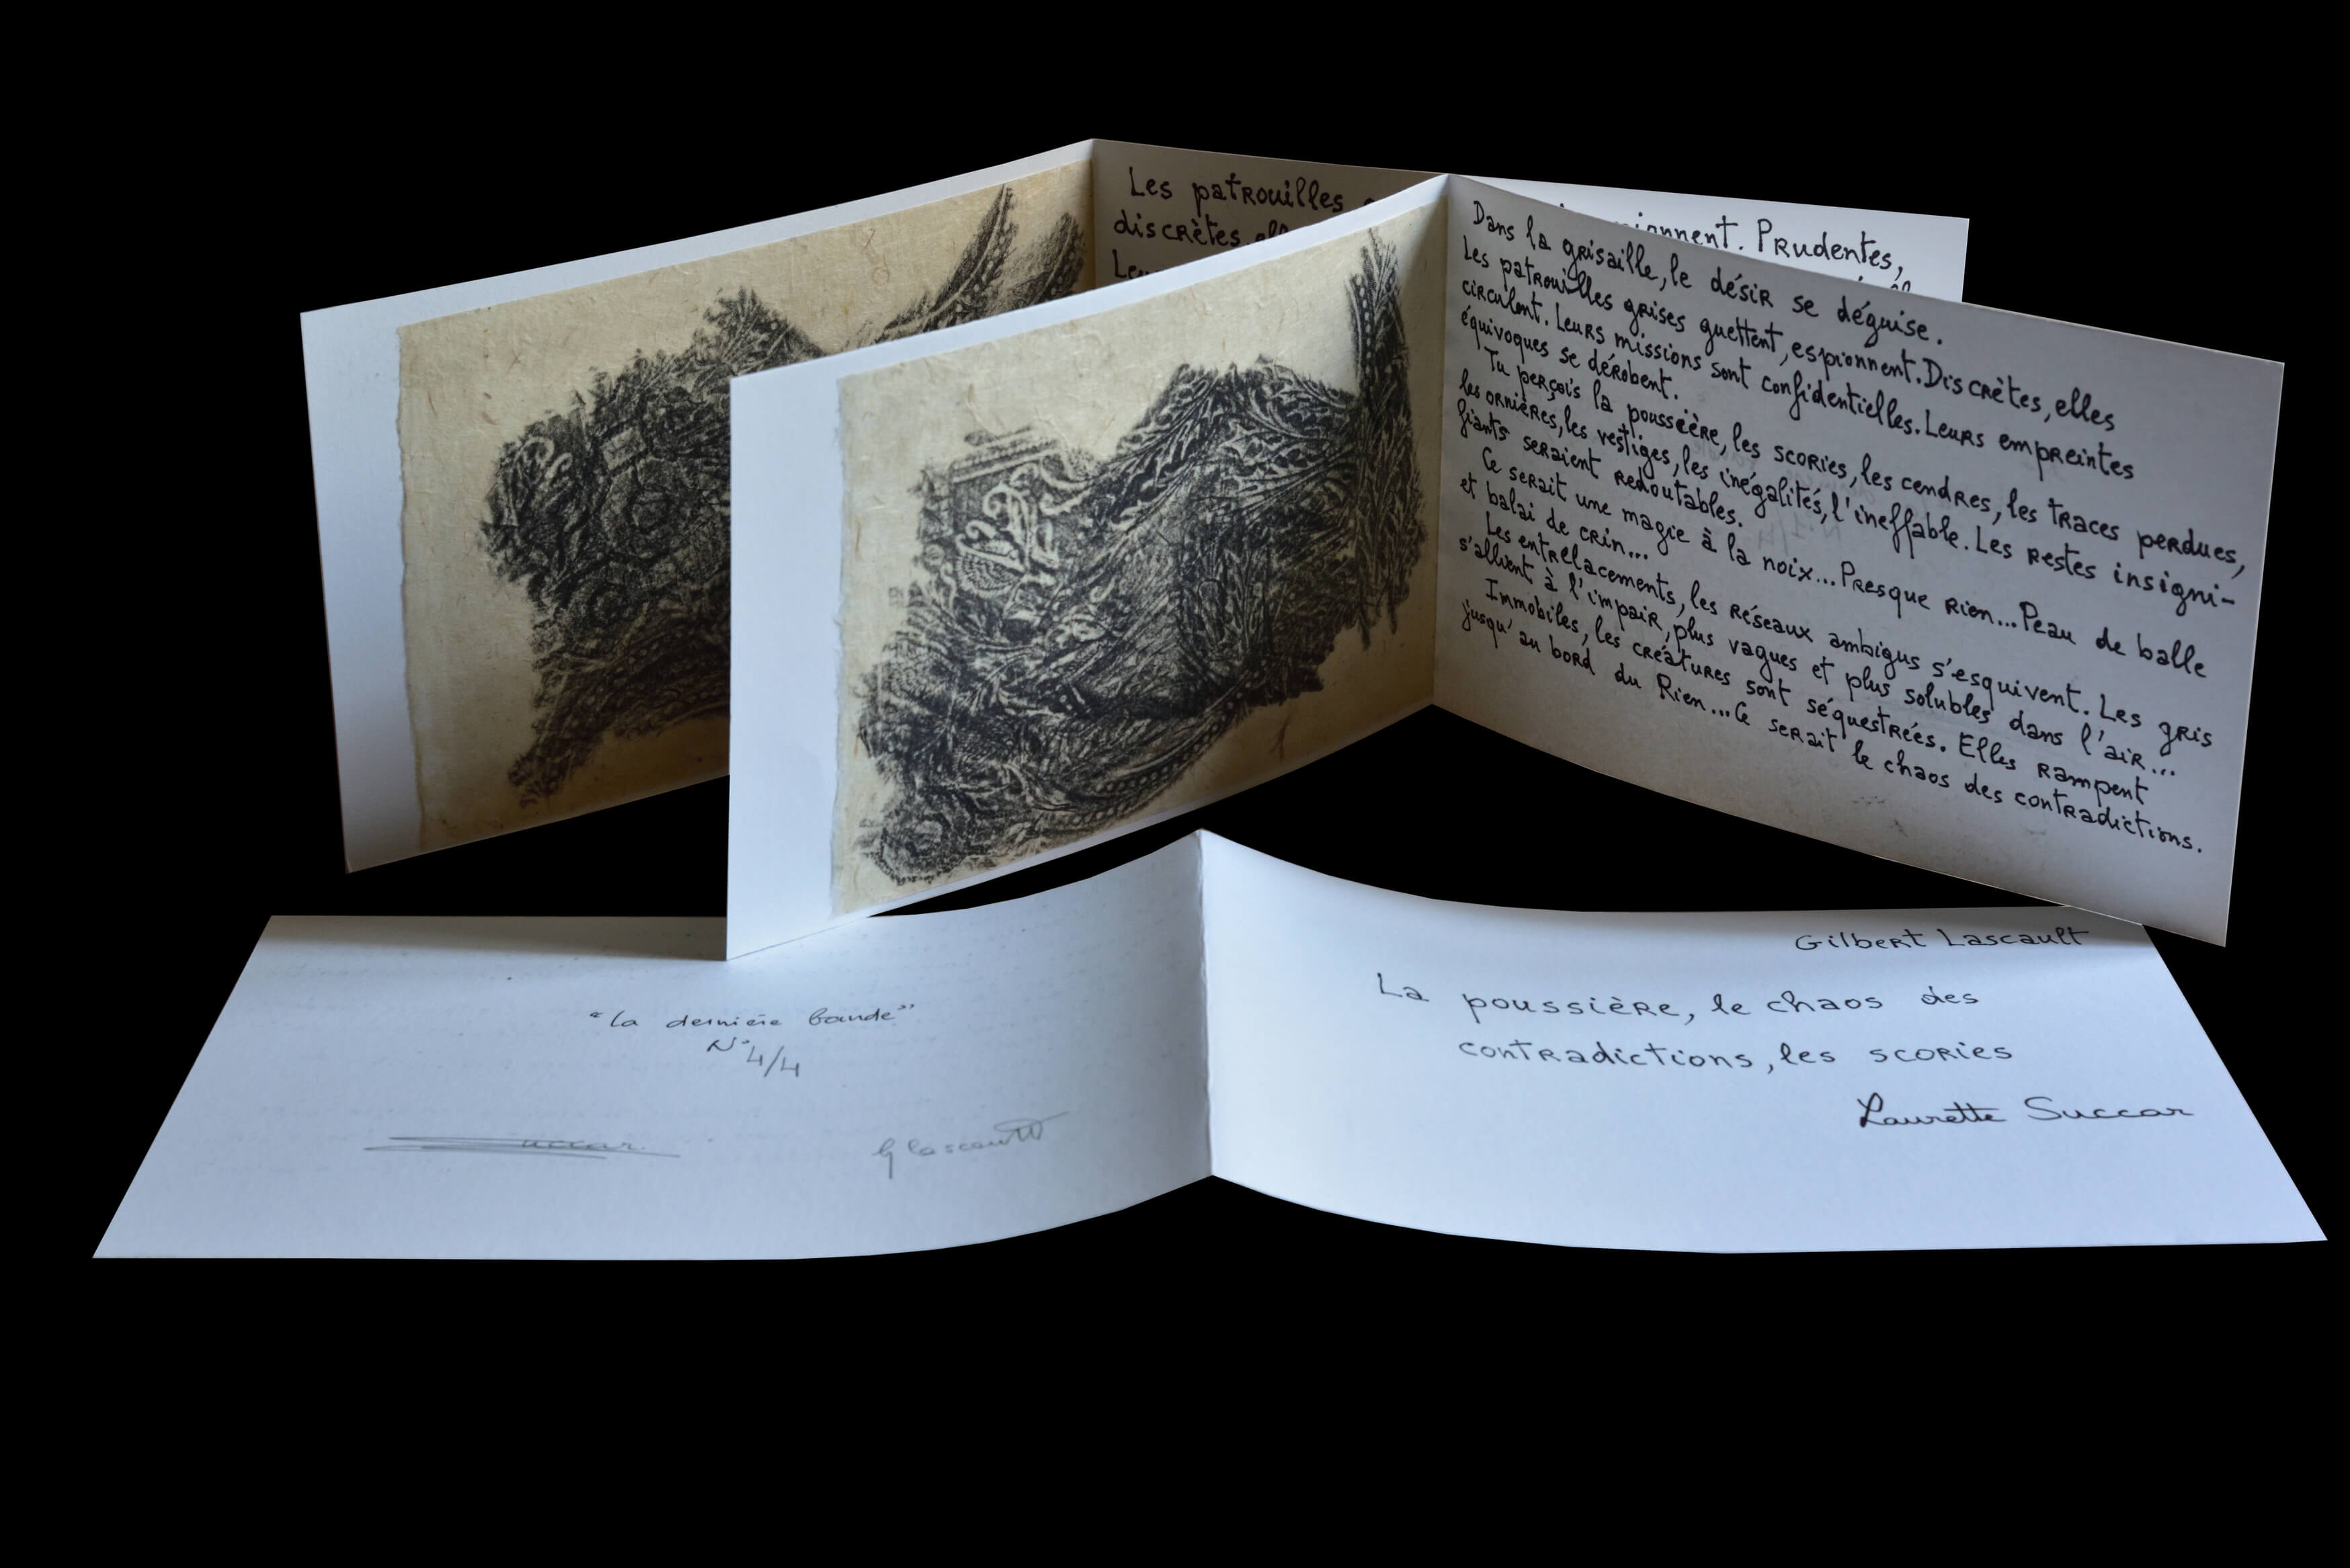 Les patrouilles
ionnent. Prudentes,
discrètes, elles
Leurs
Dans la grisaille, le désir se déguise.
Les patrouilles grises guettent, espionnent. Discrètes, elles
circulent. Leurs missions sont confidentielles. Leurs empreintes
équivoques se dérobent.
Tu perçois la poussière, les scories, les cendres, les traces perdues,
les ornières, les vestiges, les inégalités, l'ineffable. Les restes insigni-
fiants seraient redoutables.
Ce serait une magie à la noix... Presque rien... Peau de balle
et balai de crin...
Les entrelacements, les réseaux ambigus s'esquivent. Les gris
s'allient à l'impair, plus vagues et plus solubles dans l'air...
Immobiles, les créatures sont séquestrées. Elles rampent
jusqu'au bord du Rien... Ce serait le chaos des contradictions.
"la dernière bande"
N° 4/4
Succar.
G Lascault
Gilbert Lascault
La poussière, le chaos des
contradictions, les scories
Laurette Succar